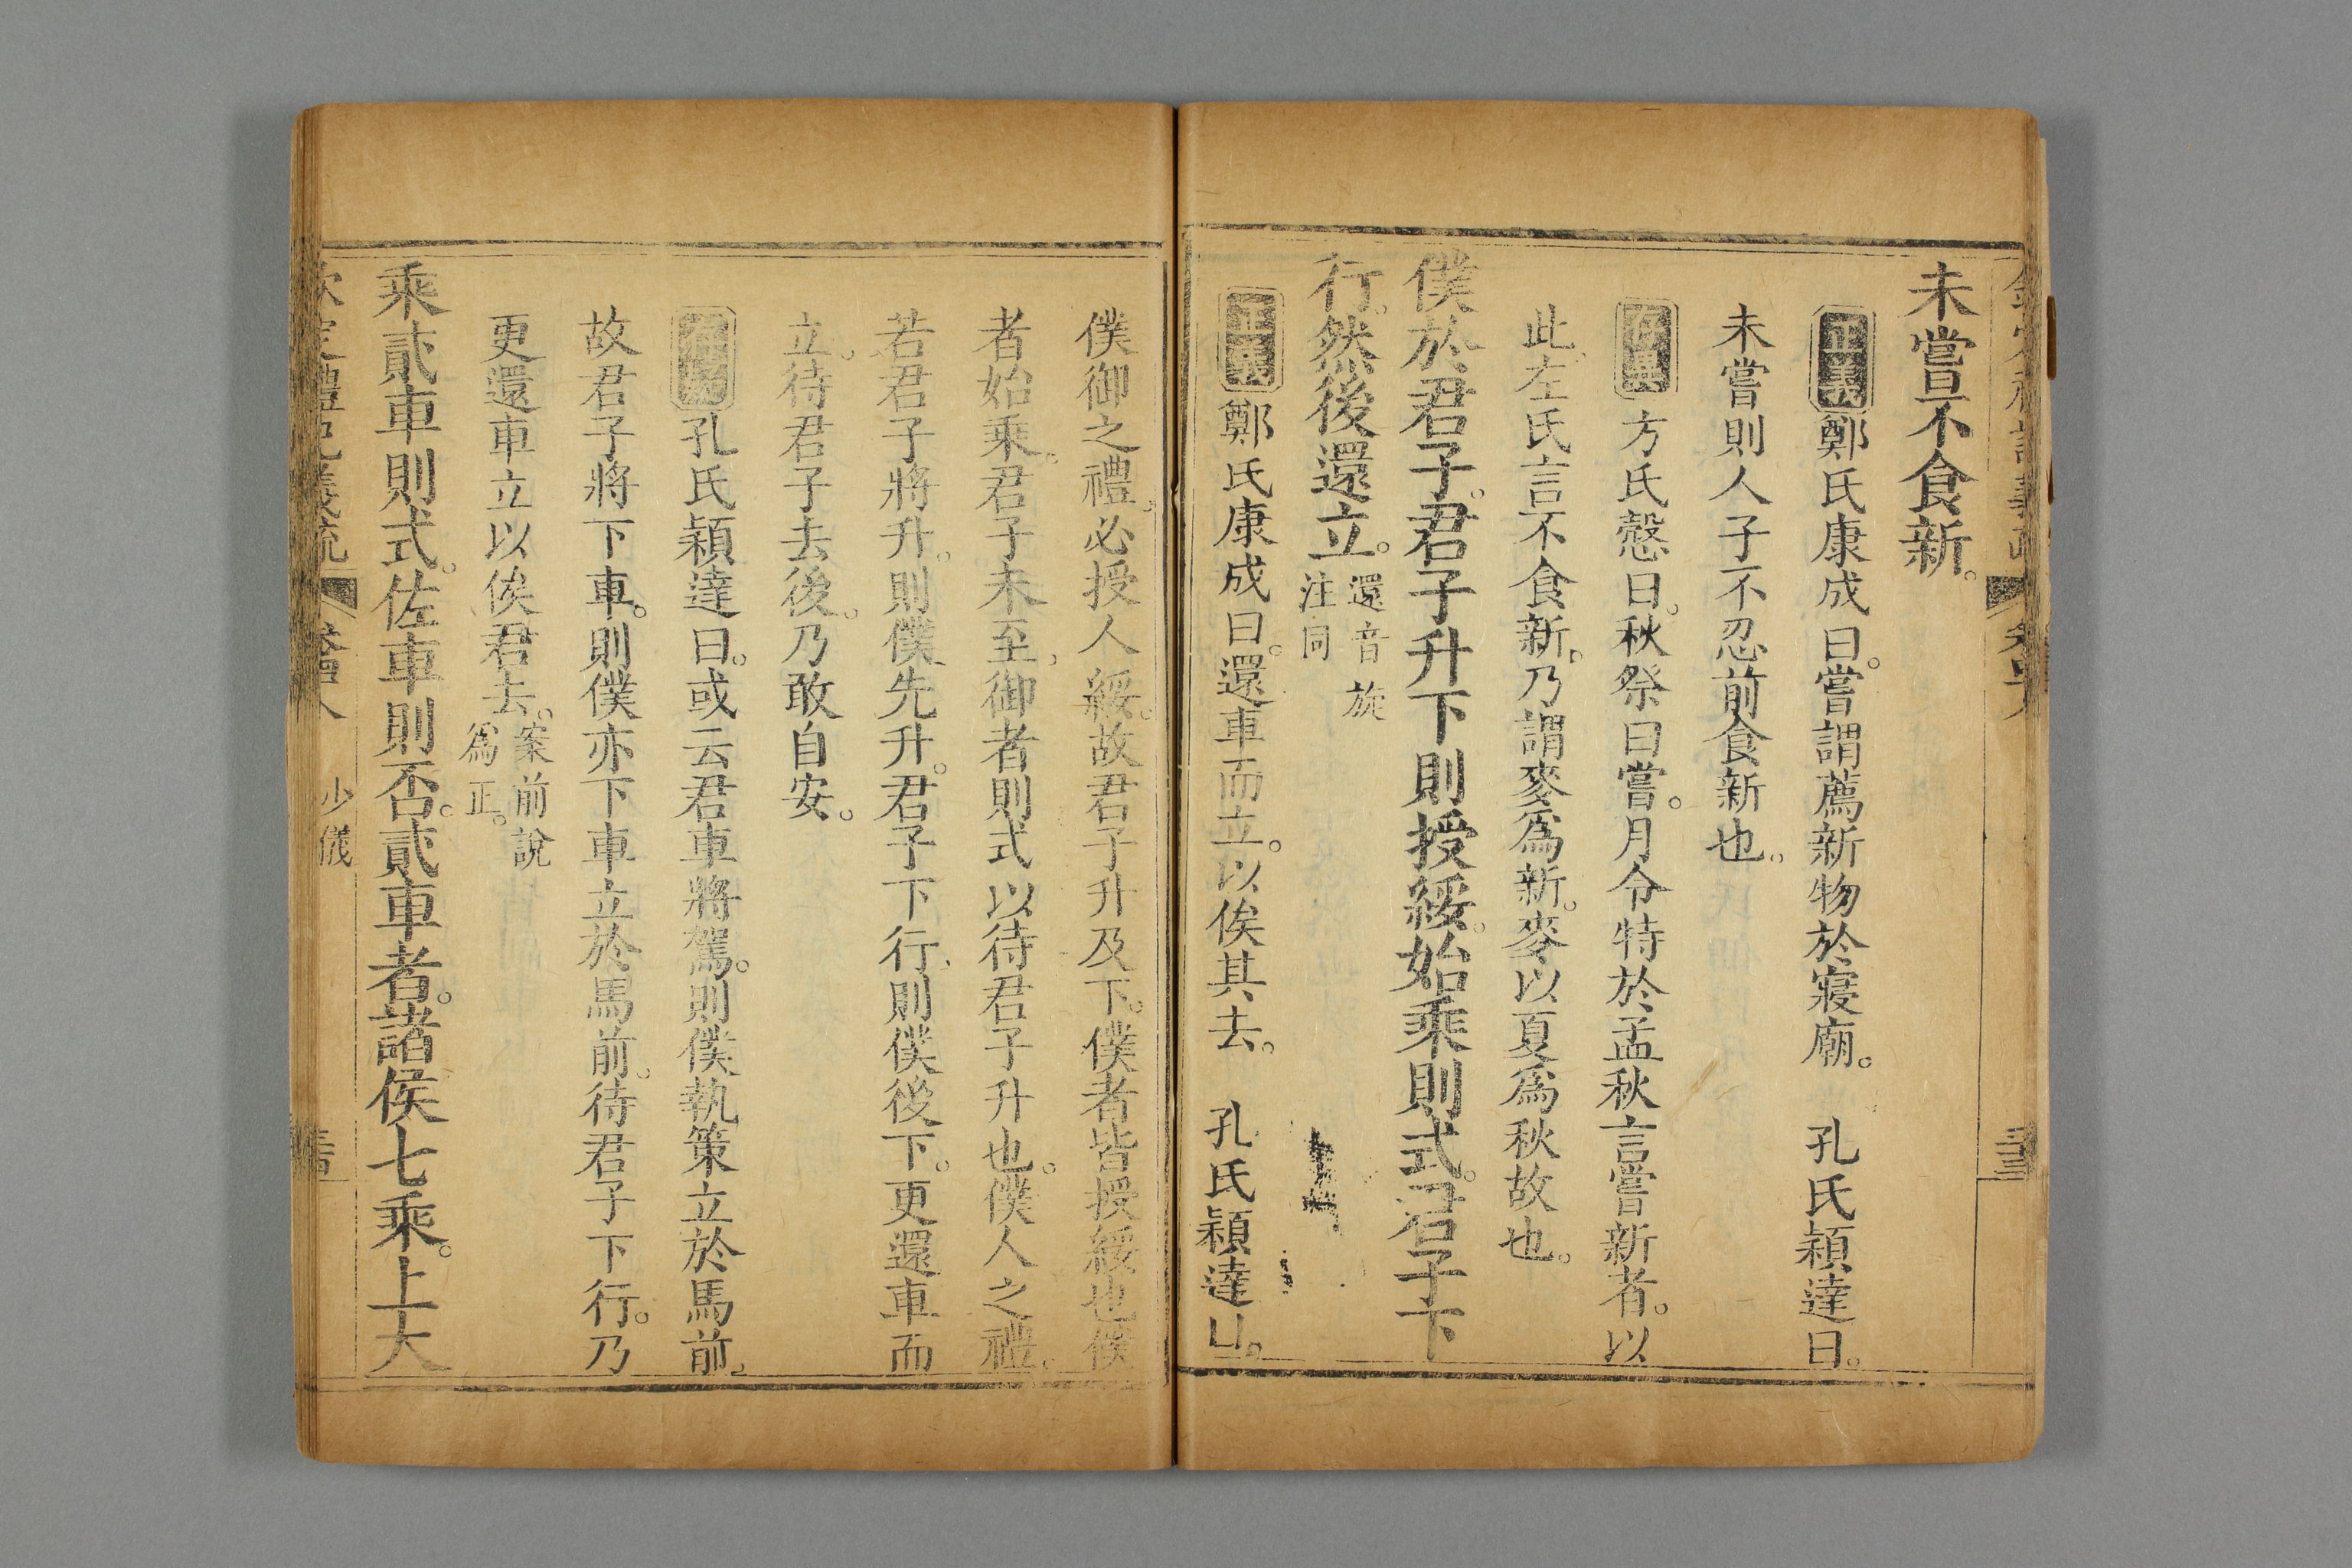 未嘗不食新。
正義鄭氏康成曰。嘗謂薦新物於寢廟。 孔氏穎達曰。
未嘗則人子不忍前食新也。
存異方氏慤曰。秋祭曰嘗。月令特於孟秋言嘗新者。以
此、左氏言不食新。乃謂麥爲新。麥以夏爲秋故也。
僕於君子。君子升下則授綏。始乘則式。君子下
行。然後還立。還音旋注同
正義鄭氏康成曰。還車而立。以俟其去。 孔氏穎達曰。
僕御之禮、必授人綏。故君子升及下。僕者皆授綏也僕
者始乘。君子未至、御者則式以待君子升也。僕人之禮。
若君子將升。則僕先升。君子下行、則僕後下。更還車而
立。待君子去後。乃敢自安。
孔氏穎達曰。或云君車將駕。則僕執策立於馬前。
故君子將下車。則僕亦下車立於馬前。待君子下行。乃
更還車立以俟君去。案前說爲正。
乘貳車則式。佐車則否。貳車者。諸侯七乘。上大
欽定禮記義疏 少儀